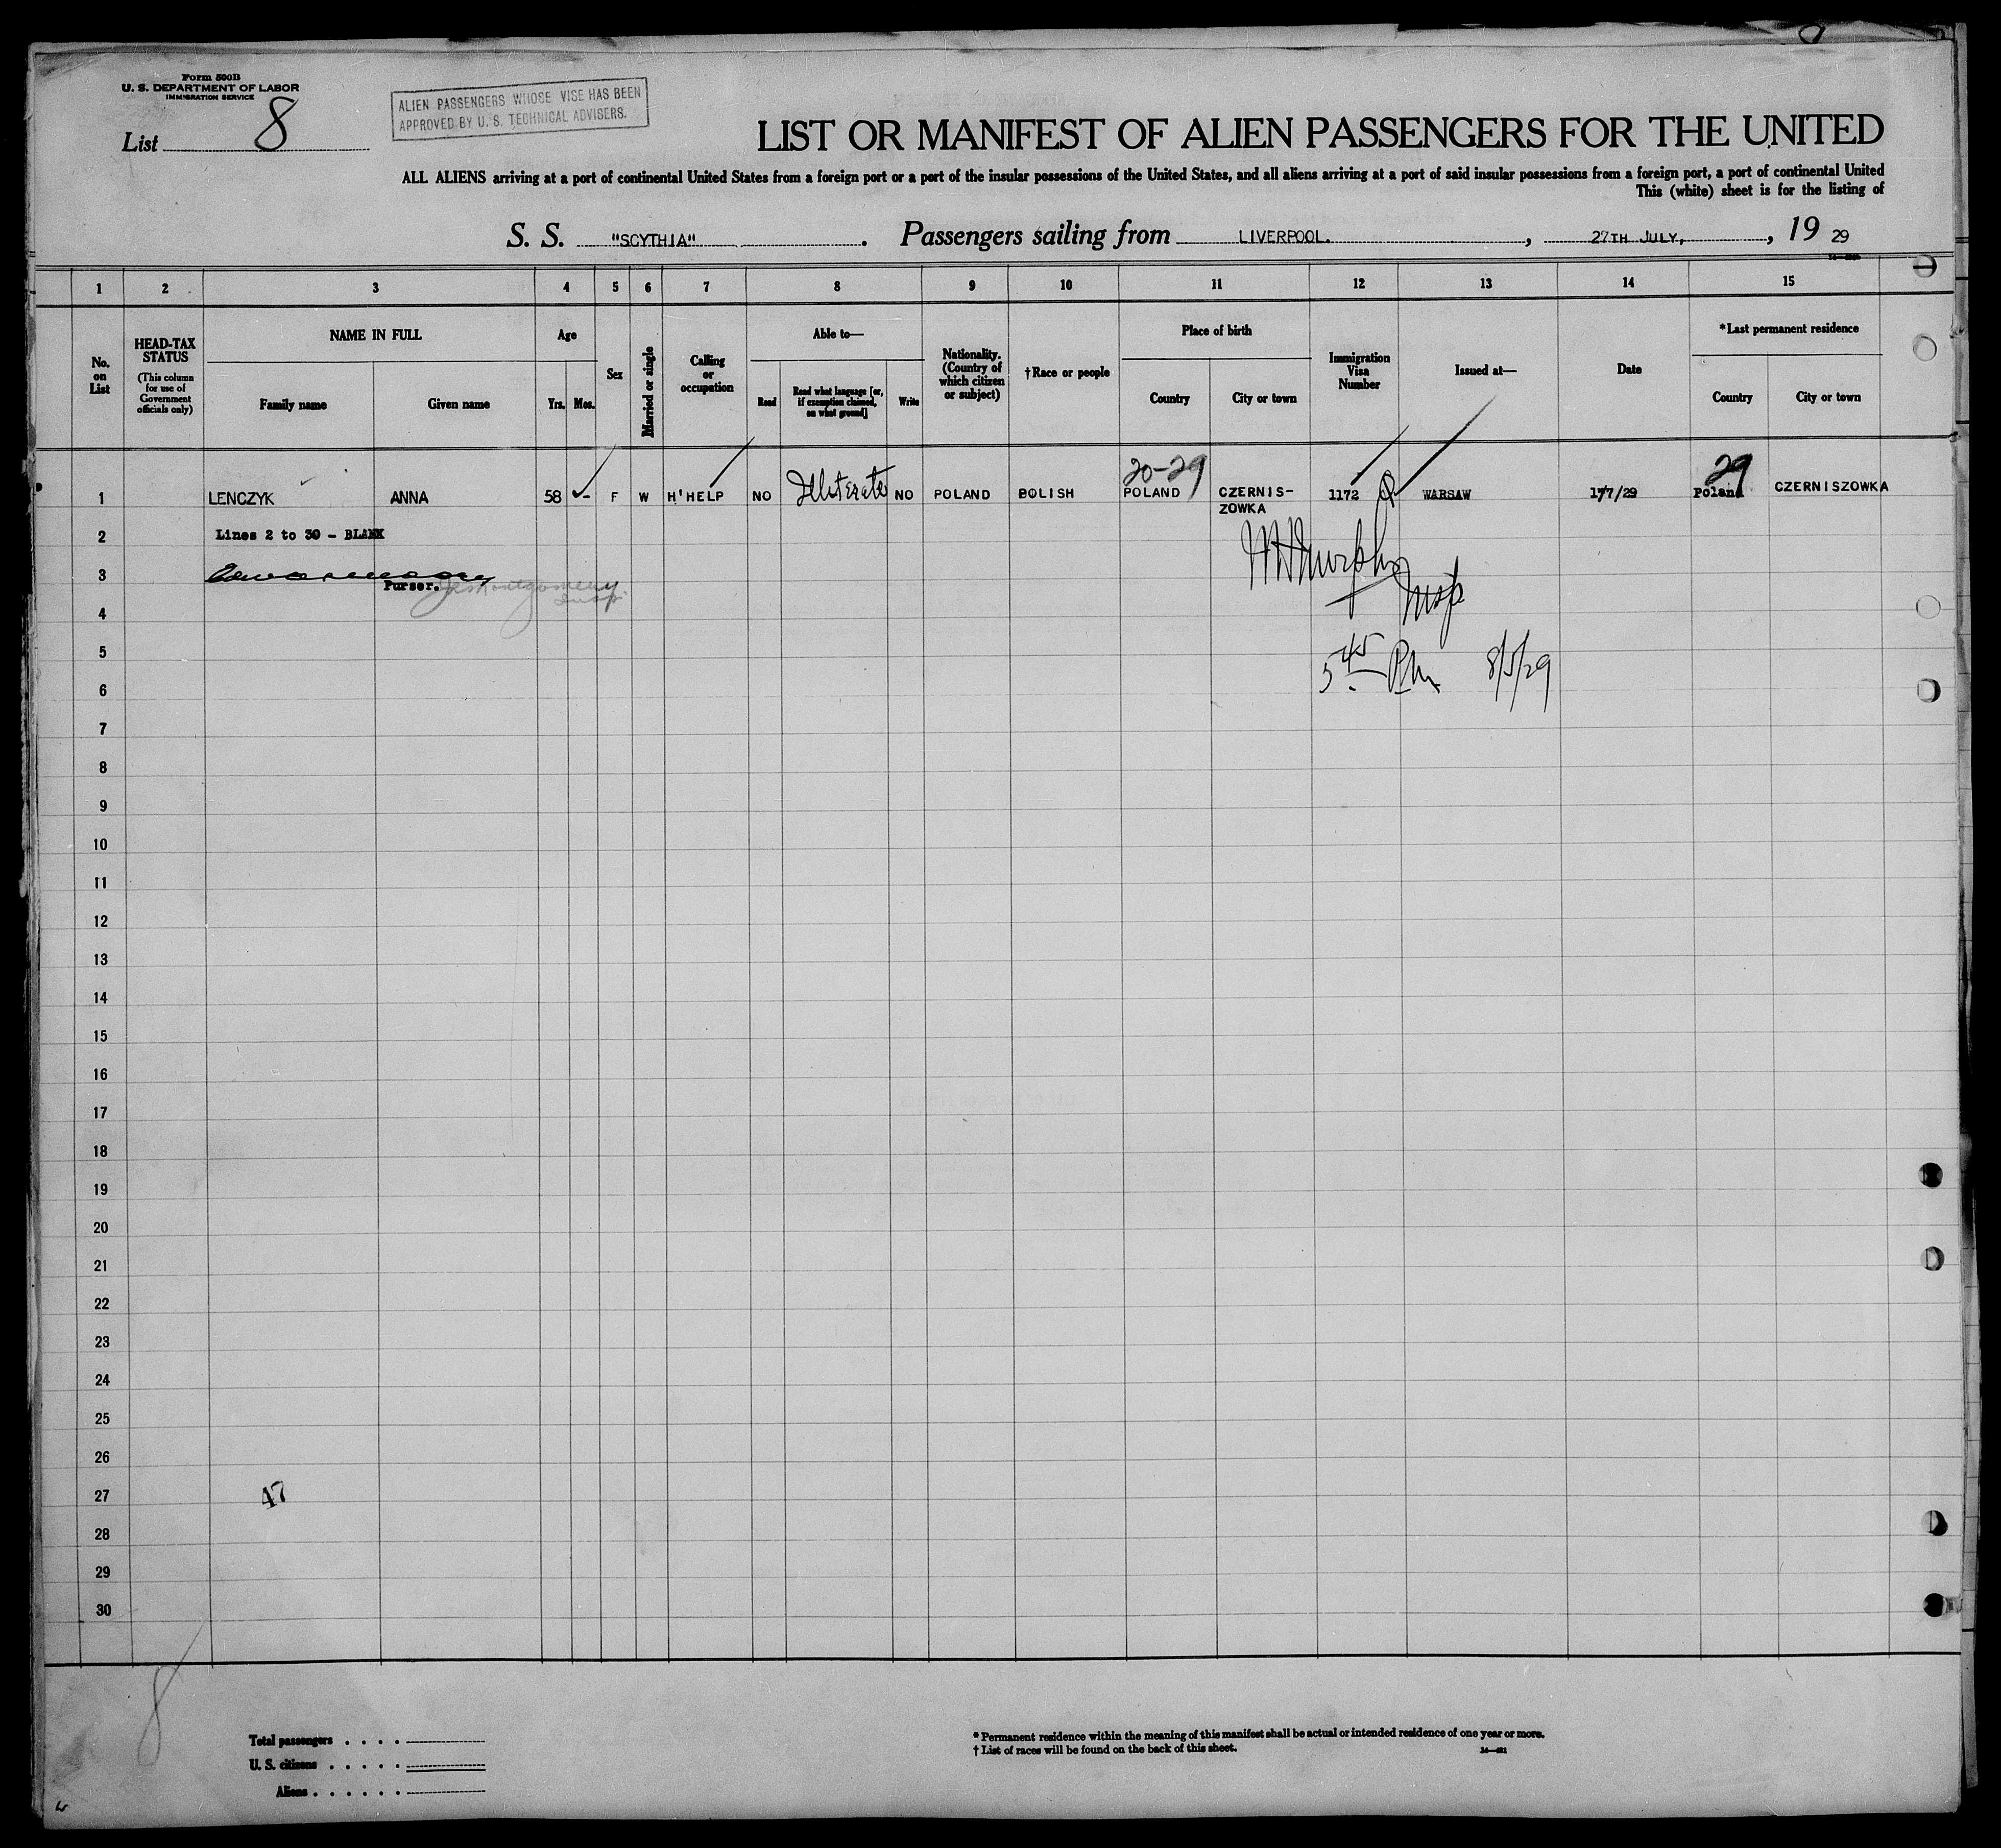 Form 500B
U. S. DEPARTMENT OF LABOR
IMMIGRATION SERVICE
List 8
ALIEN PASSENGERS WHOSE VISE HAS BEEN
APPROVED BY U. S. TECHNICAL ADVISERS.
LIST OR MANIFEST OF ALIEN PASSENGERS FOR THE UNITED
ALL ALIENS arriving at a port of continental United States from a foreign port or a port of the insular possessions of the United States, and all aliens arriving at a port of said insular possessions from a foreign port, a port of continental United
This (white) sheet is for the listing of
S. S. "SCYTHIA" . Passengers sailing from LIVERPOOL. , 27TH JULY, , 19 29
1 2 3 4 5 6 7 8 9 10 11 12 13 14 15
No. on List
HEAD-TAX STATUS
(This column for use of Government officials only)
NAME IN FULL
Family name
Given name
Age
Yrs. Mos.
Sex
Married or single
Calling or occupation
Able to—
Read
Read what language [or, if exemption claimed, on what ground]
Write
Nationality. (Country of which citizen or subject)
†Race or people
Place of birth
Country
City or town
Immigration Visa Number
Issued at—
Date
*Last permanent residence
Country
City or town
20-29 29
1 LENCZYK ANNA 58 - F W H'HELP NO Illiterate NO POLAND POLISH POLAND CZERNIS- 1172 WARSAW 17/7/29 Poland CZERNISZOWKA
ZOWKA
2 Lines 2 to 30 - BLANK
3
Purser.
Murphy
Insp
4
5
5 45 PM 8/5/29
6
7
8
9
10
11
12
13
14
15
16
17
18
19
20
21
22
23
24
25
26
27 47
28
29
30
8
Total passengers
U. S. citizens
Aliens
* Permanent residence within the meaning of this manifest shall be actual or intended residence of one year or more.
† List of races will be found on the back of this sheet.